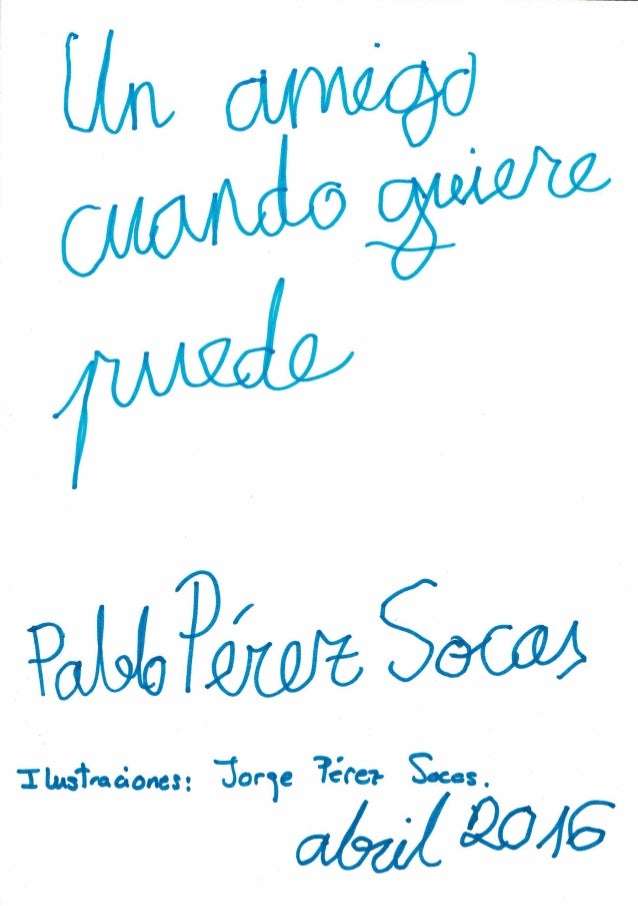 Un amigo
cuando quiere
puede
Pablo Pérez Socas
Ilustraciones: Jorge Pérez Socas.
abril 2016